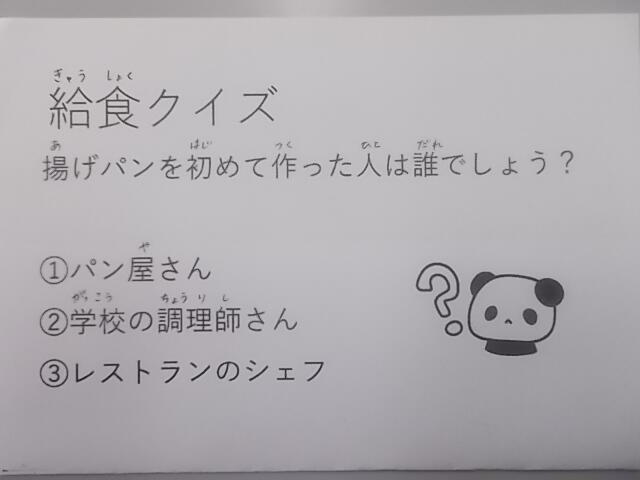 給食クイズ
揚げパンを初めて作った人は誰でしょう？
①パン屋さん
②学校の調理師さん
③レストランのシェフ